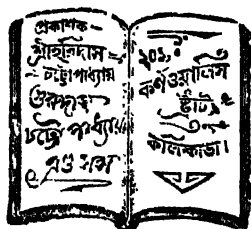 প্রকাশক-
শ্রীহরিদাস
চট্টোপাধ্যায়
গুরুদাস
চট্টোপাধ্যায়
এণ্ড সন্স
২০১।
কর্ণওয়ালিস
ষ্ট্রীট
কলিকাতা।